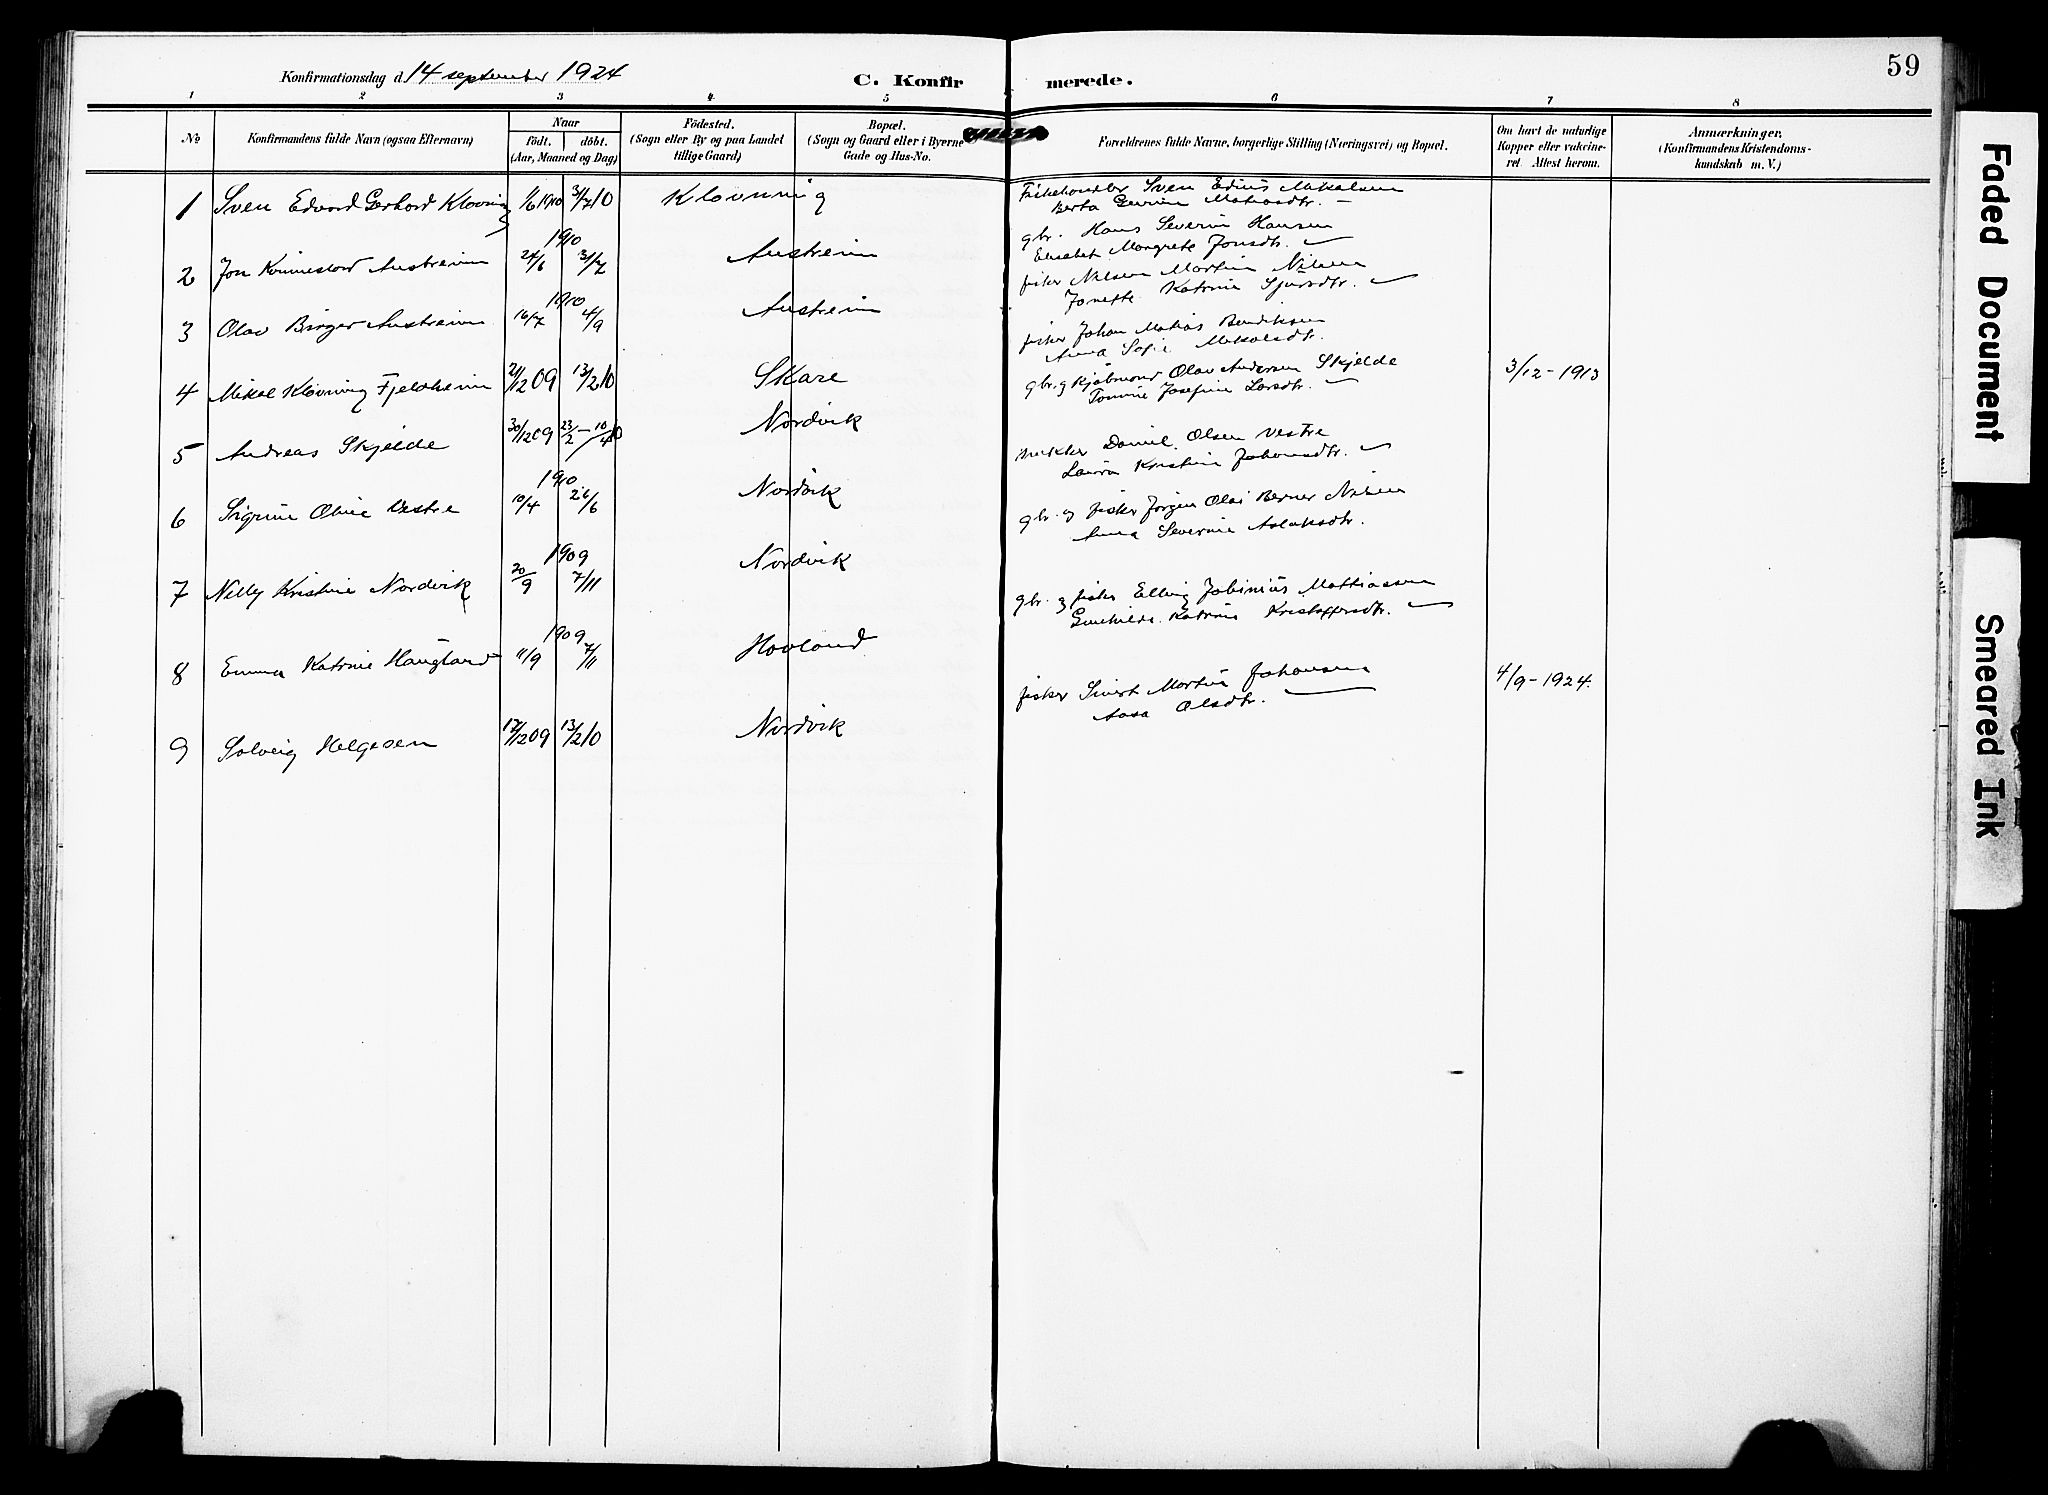 59
Konfirmationsdag d. 14 september 1924
C. Konfirmerede.
1 2 3 4 5 6 7 8
No
Konfirmandens fulde Navn (ogsaa Efternavn)
Naar
født. døbt.
(Aar, Maaned og Dag)
Fødested.
(Sogn eller By og paa Landet
tillige Gaard)
Bopæl.
(Sogn og Gaard eller i Byerne
Gade og Hus-No.
Forældrenes fulde Navne, borgerlige Stilling (Næringsvei) og Bopæl.
Om havt de naturlige
Kopper eller vakcine-
ret. Attest herom.
Anmærkninger.
(Konfirmandens Kristendoms-
kundskab m. V.)
1 Sven Edvard Gerhard Klovning 1/6 1910 3/7 10 Klovning
Fiskehandler Sven Edius Mikalsen
Berta Gurine Matiasdtr. –
2 Jon Austreim 1910 24/6 31/7 Austreim
gbr. Hans Severin Hansen
Elisabet Margrete Jonsdtr.
3 Olav Birger Austreim 1910 16/7 4/9 Austreim
fisker Nilsen Martin Nilsen
Jonette Katrine Sjursdtr.
4 Mikal Klovning Fjeldheim 21/12 09 13/2 10 Skare
fisker Johan Matias Bendiksen
Anna Sofie Mikalsdtr.
5 Andreas Skjelde 30/12 09 23/2 – 10/4 10 Nordvik
gbr. og kjøbmand Olav Andersen Skjelde
Tomine Josefine Larsdtr.
3/12 – 1913
6 Sigrun Oline Vestre 1910 10/4 26/6 Nordvik
Daniel Olsen Vestre
Laura Kristine Johansdtr.
7 Nelly Kristine Nordvik 1909 20/9 7/11 Nordvik
gbr. og fisker Jørgen Olai Berner Nilsen
Anna Severine Aslaksdtr.
8 Emma Katrine Haugland 1909 11/9 7/11 Hovland
gbr. og fisker Elling Mattiassen
Gunhilde Katrine Kristoffersdtr.
9 Solveig Helgesen 17/12 09 13/2 10 Nordvik
fisker Sivert Martin Johansen
Aasa Olsdtr.
4/9 – 1924.
Faded Document
Smeared Ink